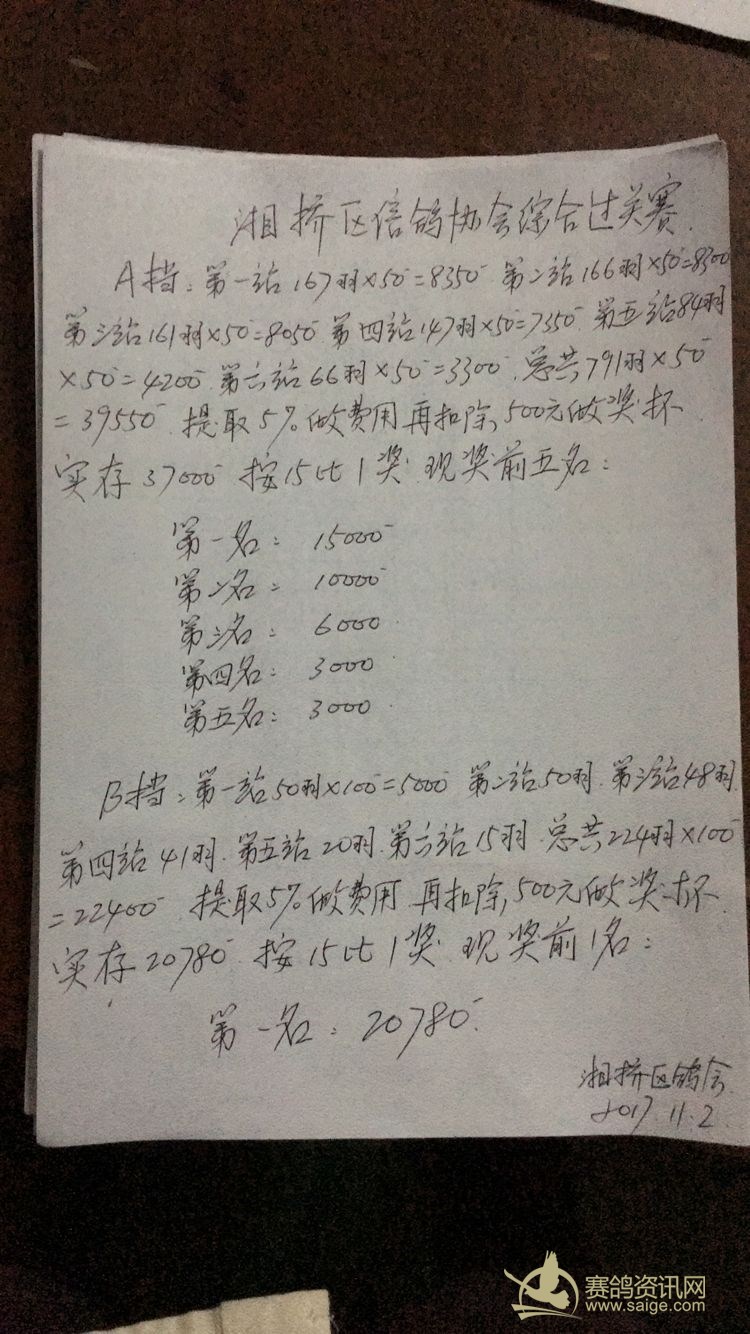 湘桥区信鸽协会综合过关赛.
A档:第一站167羽×50=8350 第二站166羽×50=8300
第三站161羽×50=8050 第四站147羽×50=7350 第五站84羽
×50=4200 第六站66羽×50=3300 总共791羽×50
=39550 提取5%做费用 再扣除,500元做奖杯
实存37000 按15比1奖 现奖前五名:
第一名: 15000
第二名: 10000
第三名: 6000
第四名: 3000
第五名: 3000
B档:第一站50羽×100=5000 第二站50羽.第三站48羽
第四站41羽.第五站20羽.第六站15羽 总共224羽×100
=22400 提取5%做费用 再扣除,500元做奖杯
实存20780 按15比1奖 现奖前1名:
第一名:20780.
湘桥区鸽会
2017.11.2
赛鸽资讯网
www.saige.com